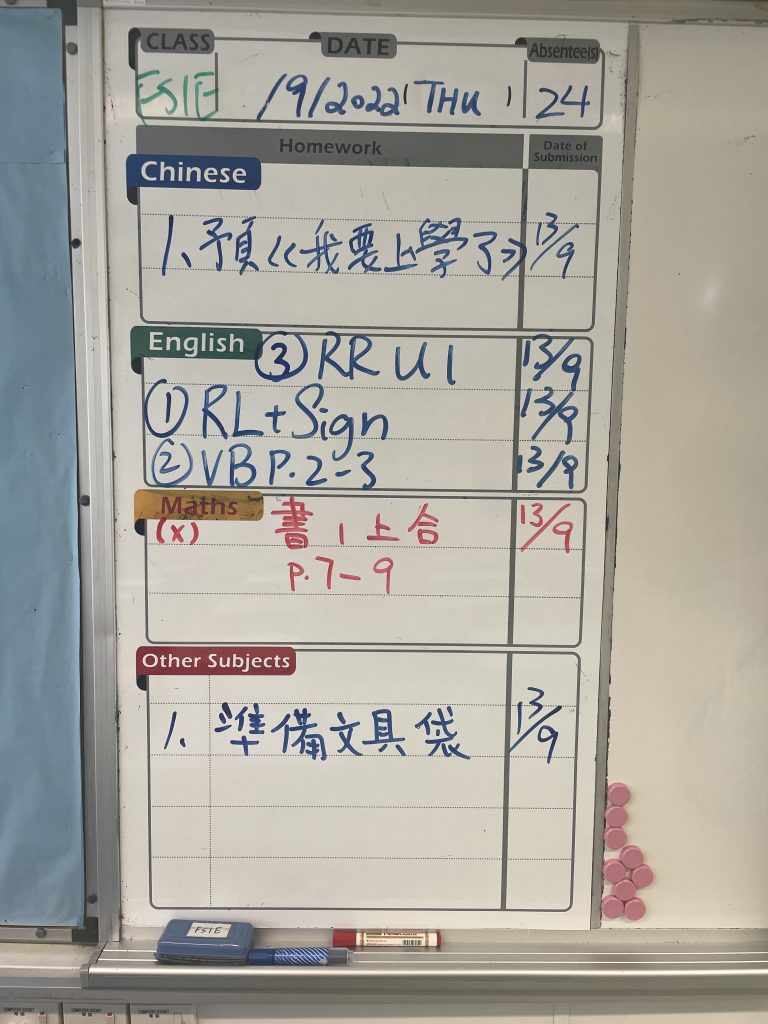 CLASS DATE Absentee(s)
FS1E /9/2022 (THU) 24
Homework Date of Submission
Chinese
1. 預《我要上學了》 13/9
English ③ RR U1 13/9
① RL+Sign 13/9
② VB P.2-3 13/9
Maths
(x) 書1上A 13/9
P.7-9
Other Subjects
1. 準備文具袋 13/9
FS1E
COMPUTER SOCKET COMPUTER SOCKET COMPUTER SOCKET